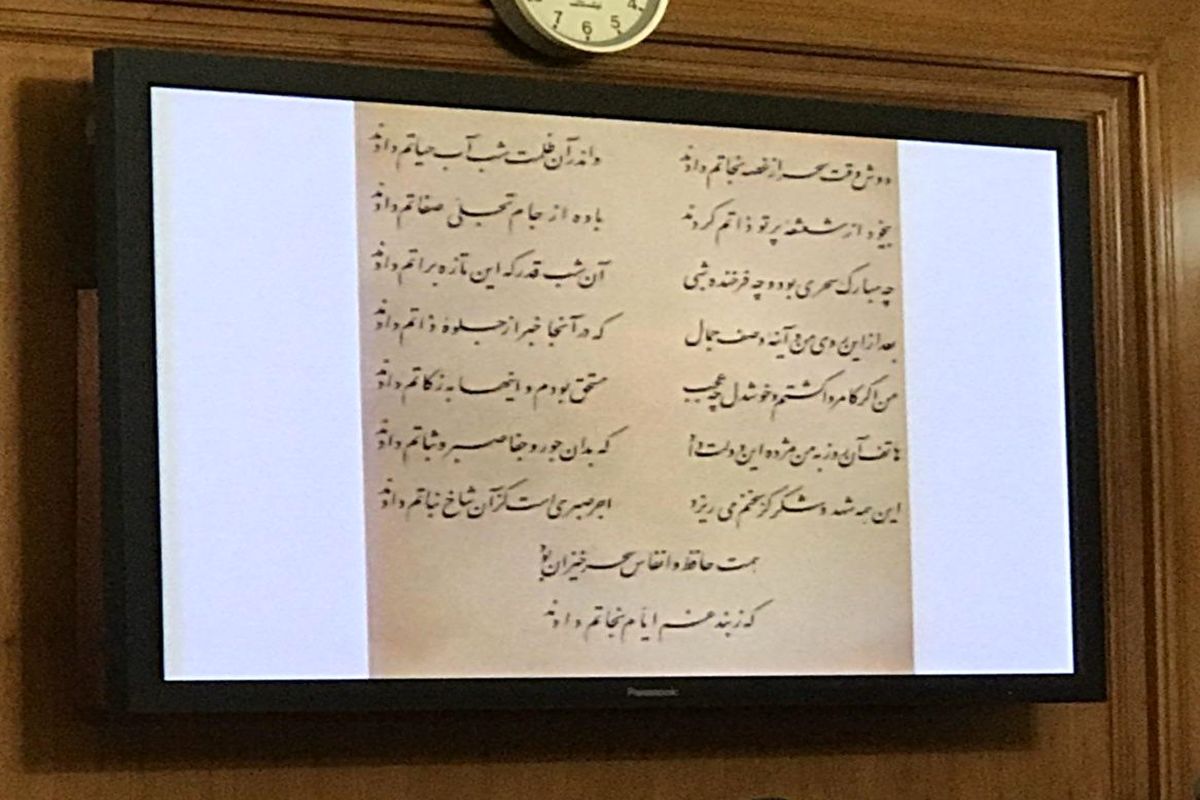 4
7 6 5
دوش وقت سحر از غصه نجاتم دادند واندر آن ظلمت شب آب حیاتم دادند
بیخود از شعشعهٔ پرتو ذاتم کردند باده از جام تجلی صفاتم دادند
چه مبارک سحری بود و چه فرخنده شبی آن شب قدر که این تازه براتم دادند
بعد از این روی من و آینهٔ وصف جمال که در آنجا خبر از جلوهٔ ذاتم دادند
من اگر کامروا گشتم و خوشدل چه عجب مستحق بودم و اینها به زکاتم دادند
هاتف آن روز به من مژده این دولت داد که بدان جور و جفا صبر و ثباتم دادند
این همه شهد و شکر کز سخنم می ریزد اجر صبری است کز آن شاخ نباتم دادند
همت حافظ و انفاس سحر خیزان بود
که ز بند غم ایام نجاتم دادند
Panasonic